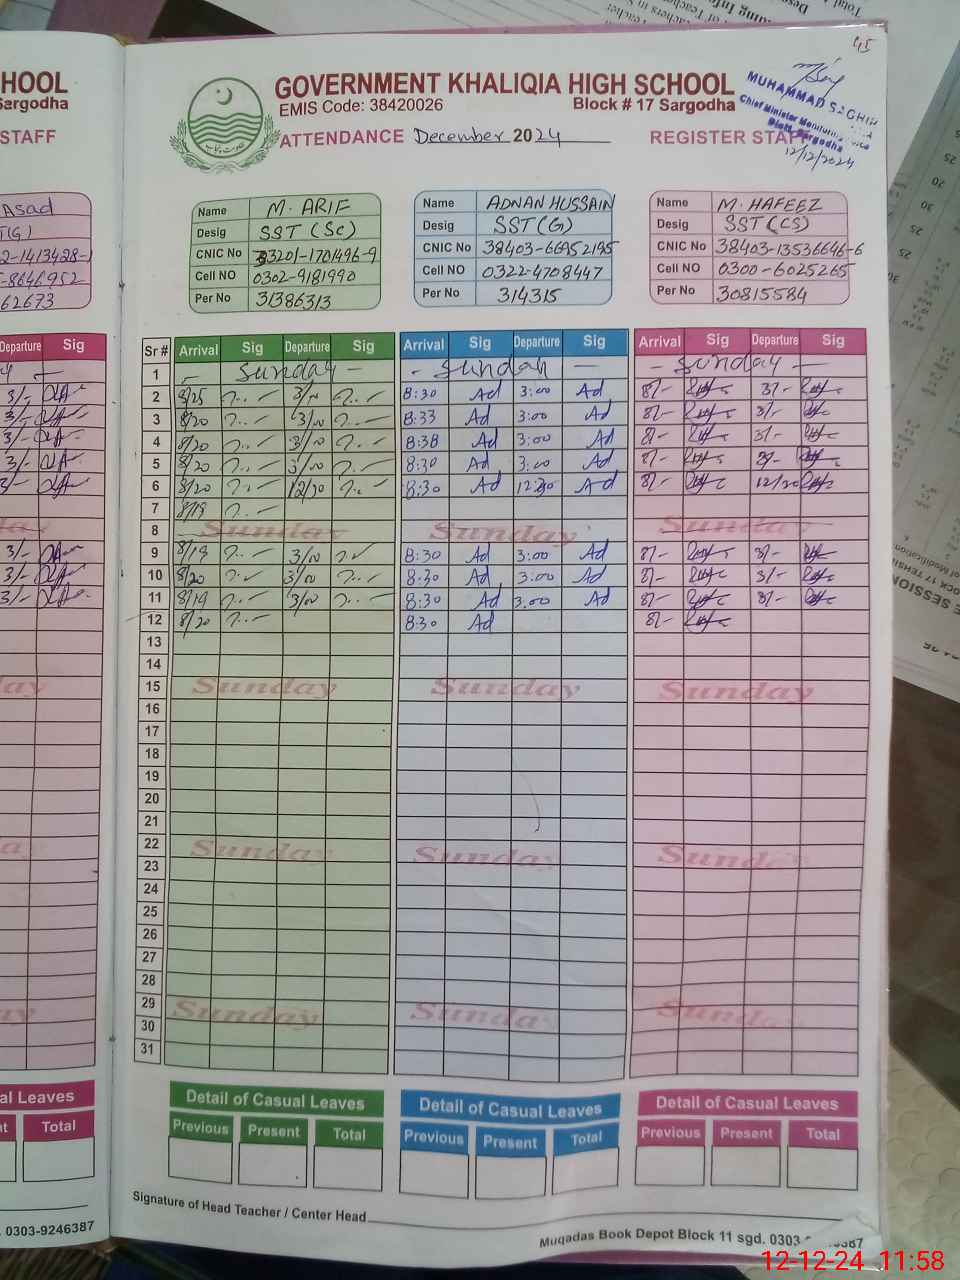 GOVERNMENT KHALIQIA HIGH SCHOOL
EMIS Code: 38420026 Block # 17 Sargodha
ATTENDANCE December 2024 REGISTER STAFF
45
MUHAMMAD SAGHIR
Chief Minister Monitoring
Distt. Sargodha
12/12/2024
HOOL
Sargodha
STAFF
Asad
T(G)
2-1413428-1
5-8646952
62673
Name M. ARIF
Desig SST (Sc)
CNIC No 33201-1701496-9
Cell NO 0302-9181990
Per No 31386313
Name ADNAN HUSSAIN
Desig SST (G)
CNIC No 38403-66952195
Cell NO 0322-4708447
Per No 314315
Name M. HAFEEZ
Desig SST (CS)
CNIC No 38403-13536646-6
Cell NO 0300-6025265
Per No 30815584
Departure Sig
Sr # Arrival Sig Departure Sig Arrival Sig Departure Sig Arrival Sig Departure Sig
1 – Sunday – – Sunday – – Sunday –
2 8/25 3/00 8:30 Ad 3:00 Ad 8/- 3/-
3 8/20 3/00 8:33 Ad 3:00 Ad 8/- 3/-
4 8/20 3/00 8:38 Ad 3:00 Ad 8/- 3/-
5 8/20 3/00 8:30 Ad 3:00 Ad 8/- 3/-
6 8/20 12/30 8:30 Ad 12:30 Ad 8/- 12/30
7 8/19
8 Sunday Sunday Sunday
9 8/19 3/00 8:30 Ad 3:00 Ad 8/- 3/-
10 8/20 3/00 8:30 Ad 3:00 Ad 8/- 3/-
11 8/19 3/00 8:30 Ad 3:00 Ad 8/- 3/-
12 8/20 8:30 Ad 8/-
13
14
15 Sunday Sunday Sunday
16
17
18
19
20
21
22 Sunday Sunday Sunday
23
24
25
26
27
28
29 Sunday Sunday Sunday
30
31
al Leaves
Total
Detail of Casual Leaves
Previous Present Total
Detail of Casual Leaves
Previous Present Total
Detail of Casual Leaves
Previous Present Total
Signature of Head Teacher / Center Head
. 0303-9246387
Muqadas Book Depot Block 11 sgd. 0303
12-12-24 11:58